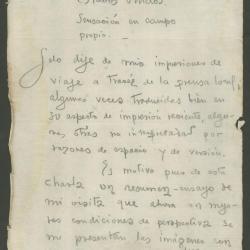 Estados Unidos
Sensación en campo
propio.
Solo dije de mis impresiones de
viaje a través de la prensa local,
algunas veces traducidas bien en
su aspecto de impresión reciente, algu-
nas, otras no integradas por
razones de espacio y de versión.
Es motivo pues de esta
charla un resumen-ensayo de
mi visita que ahora en mejo-
res condiciones de perspectiva se
me presentan las imágenes con